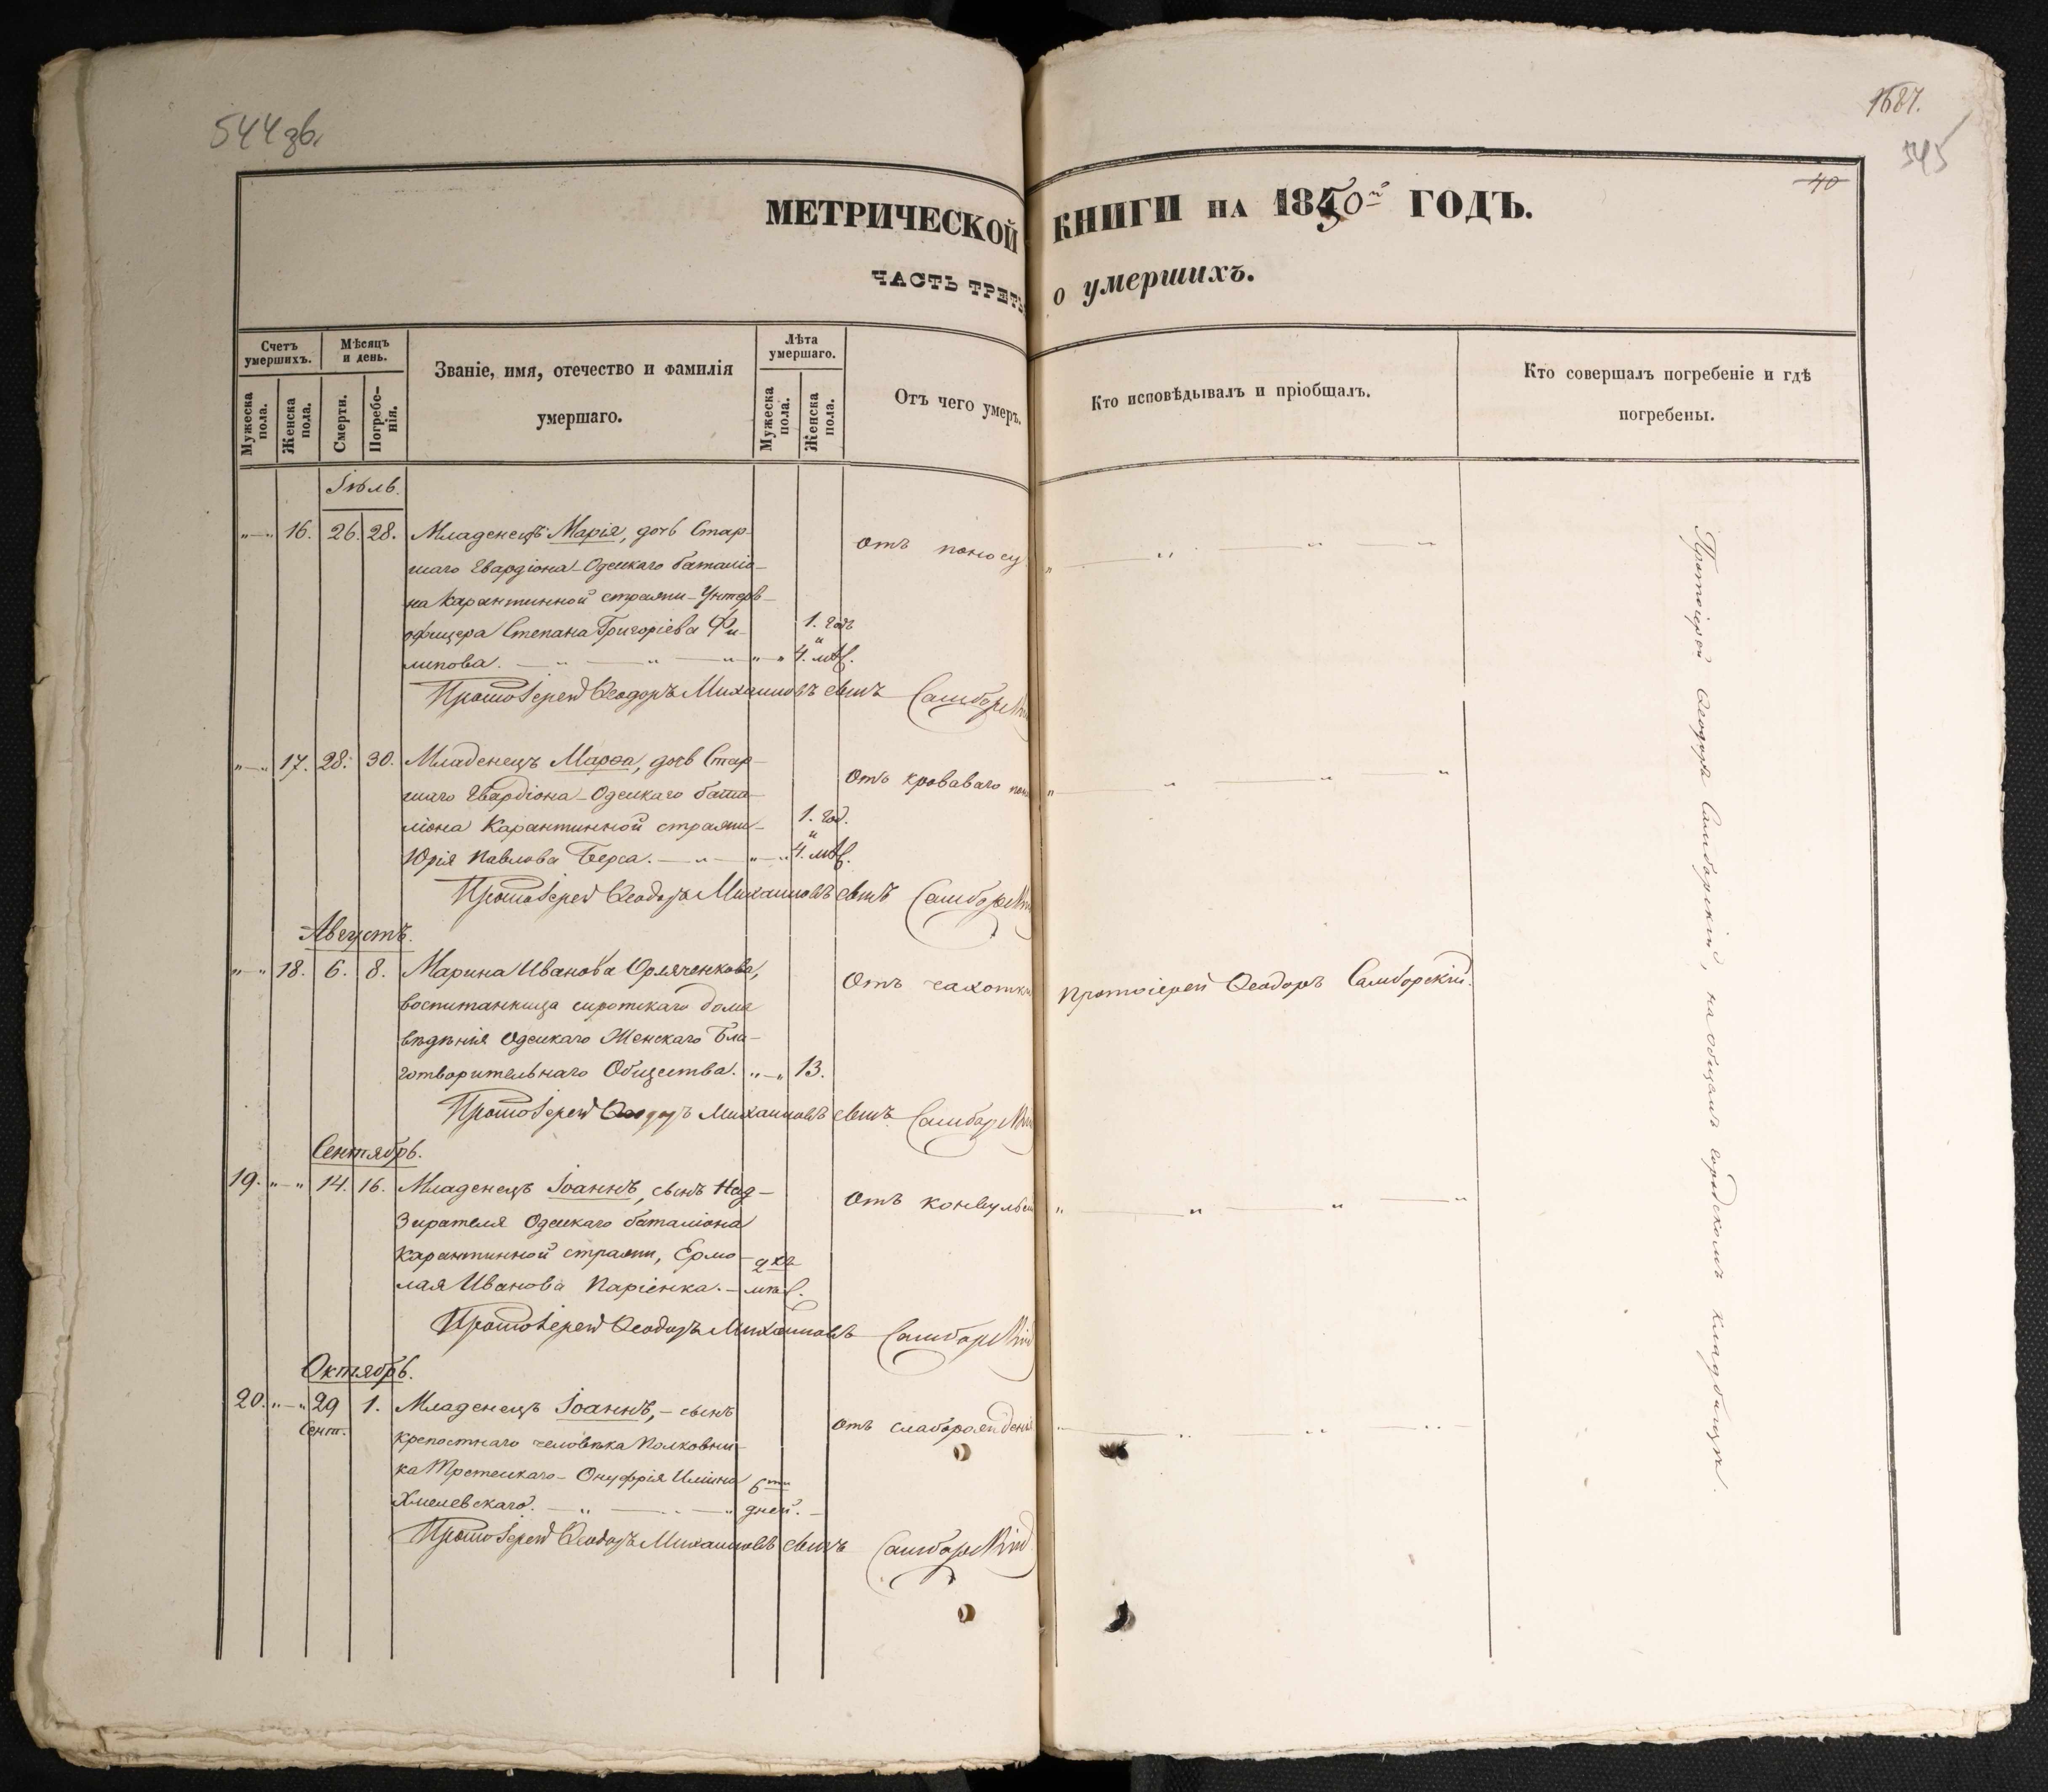 544 зв.
1687.
545
40
МЕТРИЧЕСКОЙ КНИГИ НА 1850й ГОДЪ.
ЧАСТЬ ТРЕТЬ о умершихъ.
Счетъ умершихъ.
Мужеска пола.
Женска пола.
Мѣсяцъ и день.
Смерти.
Погребенія.
Званіе, имя, отечество и фамилія
умершаго.
Лѣта умершаго.
Мужеска пола.
Женска пола.
Отъ чего умеръ.
Кто исповѣдывалъ и пріобщалъ.
Кто совершалъ погребеніе и гдѣ
погребены.
Іюль.
16. 26. 28. Младенецъ Марія, дочь Стар-
шаго Гвардіона Одескаго баталіо-
на карантинной стражи Унтеръ-
офицера Степана Григоріева Фи- 1. годъ
липова. и 4. мѣс.
Отъ поносу
Протоіерей Ѳеодоръ Михаиловъ сынъ Самборскій
17. 28. 30. Младенецъ Марѳа, дочь Стар-
шаго Гвардіона Одескаго бата-
ліона Карантинной стражи 1. год.
Юрія Павлова Берса. и 4. мѣс.
Отъ кроваваго
Протоіерей Ѳеодоръ Михаиловъ сынъ Самборскій
Августъ.
18. 6. 8. Марина Иванова Орляченкова,
воспитанница сиротскаго дома
вѣдѣнія Одескаго Женскаго Бла-
готворительнаго Общества. 13.
Отъ чахотки
Протоіерей Ѳеодоръ Самборскій.
Протоіерей Ѳеодоръ Михаиловъ сынъ Самборскій
Сентябрь.
19. 14. 16. Младенецъ Іоаннъ, сынъ Над-
зирателя Одескаго баталіона
карантинной стражи, Ермо- 2хъ
лая Иванова Паріенка. мѣс.
Отъ конвульсіи
Протоіерей Ѳеодоръ Михаиловъ Самборскій
Октябрь.
20. 29 Сент. 1. Младенецъ Іоаннъ, сынъ
крепостнаго человѣка Полковни-
ка Третескаго Онуфрія Иліина 6ти
Хмелевскаго. дней.
Отъ слаборожденія
Протоіерей Ѳеодоръ Михаиловъ сынъ Самборскій
Протоіерей Ѳеодоръ Самборскій, на общемъ городскомъ кладбищѣ.